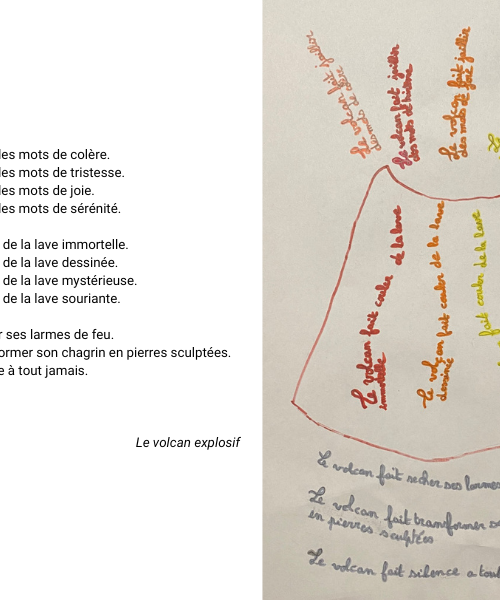 les mots de colère.
les mots de tristesse.
les mots de joie.
les mots de sérénité.
de la lave immortelle.
de la lave dessinée.
de la lave mystérieuse.
de la lave souriante.
ses larmes de feu.
ormer son chagrin en pierres sculptées.
e à tout jamais.
Le volcan explosif
Le volcan fait jaillir
des mots de colère
Le volcan fait jaillir
des mots de tristesse
Le volcan fait jaillir
des mots de joie
Le volcan fait couler de la lave
immortelle
Le volcan fait couler de la lave
dessinée
fait couler de la lave
Le volcan fait secher ses larmes
Le volcan fait transformer
en pierres sculptées
Le volcan fait silence a tout